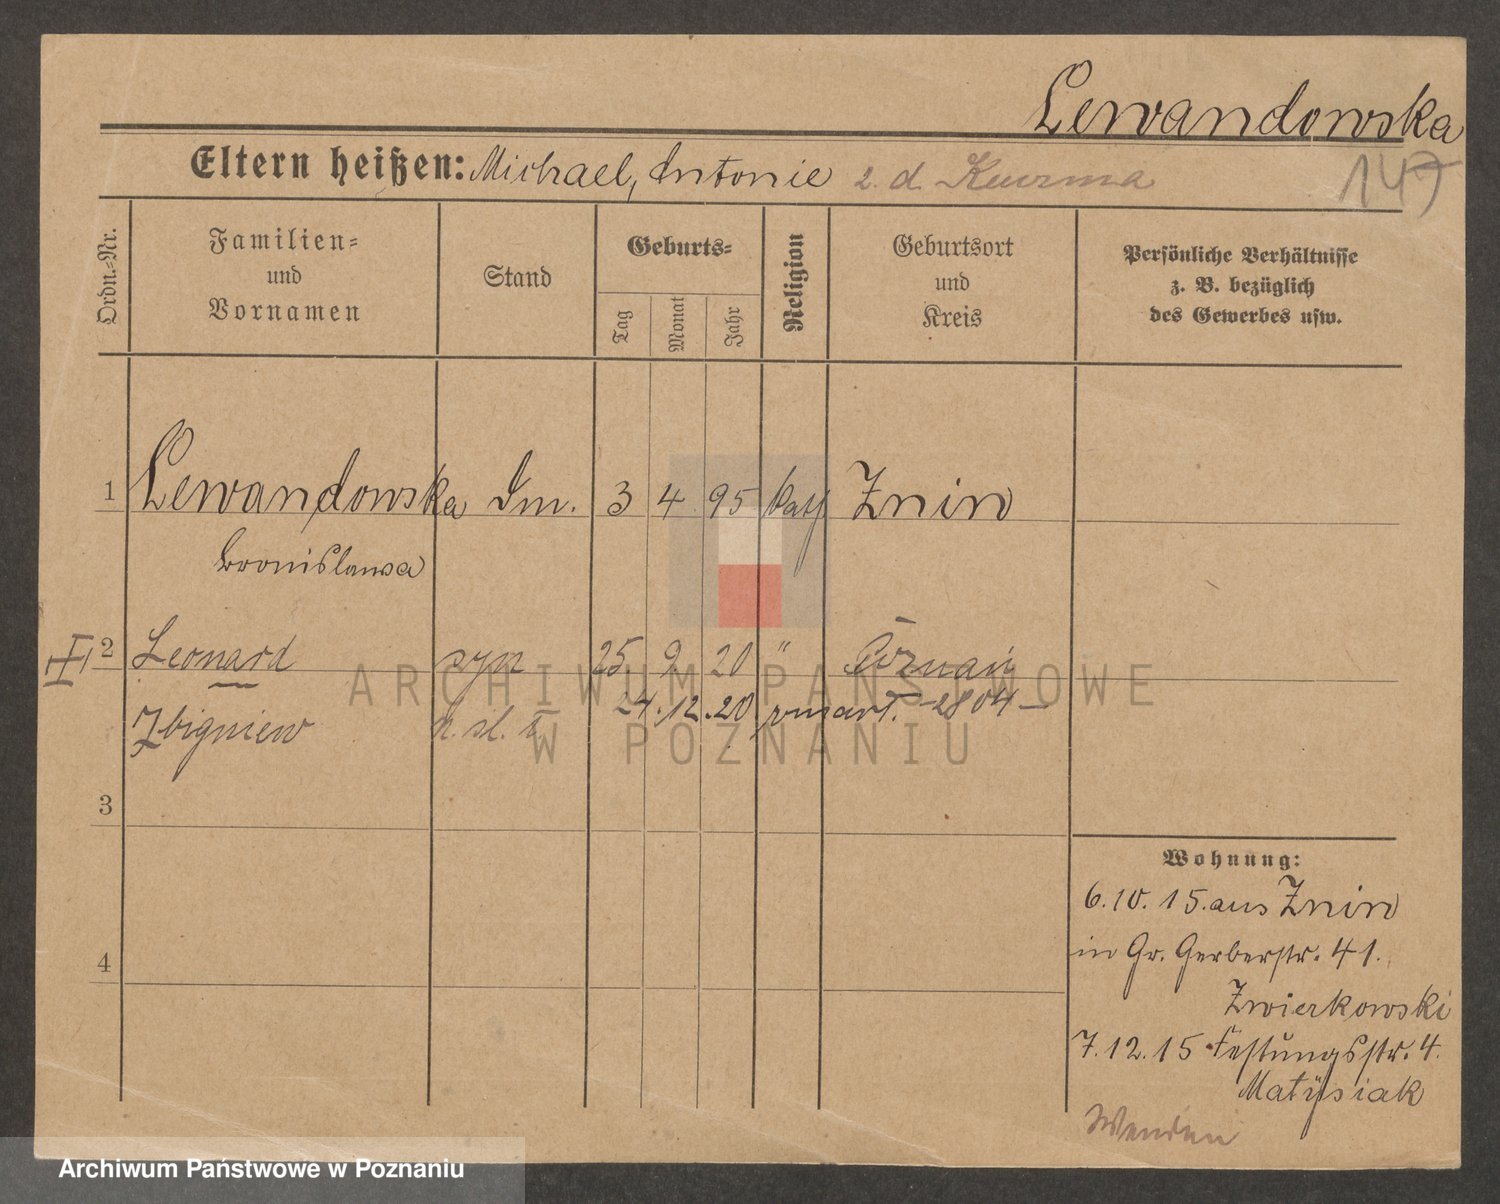 Lewandowska
Eltern heißen: Michael, Antonie z. d. Kuzma
147
Ordn.-Nr.
Familien-
und
Vornamen
Stand
Geburts-
Tag
Monat
Jahr
Religion
Geburtsort
und
Kreis
Persönliche Verhältnisse
z. B. bezüglich
des Gewerbes usw.
1 Lewandowska 3 4 95 kath Znin
Bronislawa
2 Leonard syn 25 9. 20 " Poznań
24.12.20 zmarł. 2804
Zbigniew
3
4
Wohnung:
6.10.15. aus Znin
in Gr. Gerberstr. 41.
Zwierkowski
7.12.15 Festungsstr. 4.
Matysiak
Wenden
ARCHIWUM PAŃSTWOWE
W POZNANIU
Archiwum Państwowe w Poznaniu